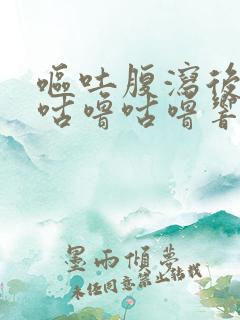 嘔吐腹瀉後
咕嚕咕嚕響
墨雨傾夢
未任同意禁止轉載